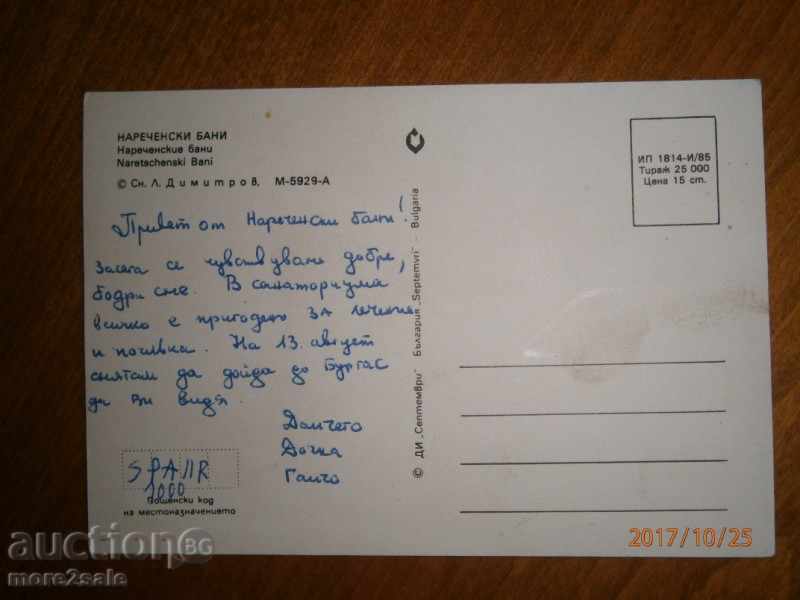 НАРЕЧЕНСКИ БАНИ
Нареченские бани
Naretschenski Bani
© Сн. Л. Димитров, М-5929-А
Привет от Нареченски бани!
Засега се чувствуваме добре,
бодри сме. В санаториума
всичко е пригодено за лечение
и почивка. На 13. август
смятам да дойда до Бургас
да Ви видя.
Данчето
Дочка
Ганчо
1000
Пощенски код
на местоназначението
© ДИ „Септември" България „Septemvri" - Bulgaria
ИП 1814-И/85
Тираж 25 000
Цена 15 ст.
2017/10/25
auction BG
more2sale